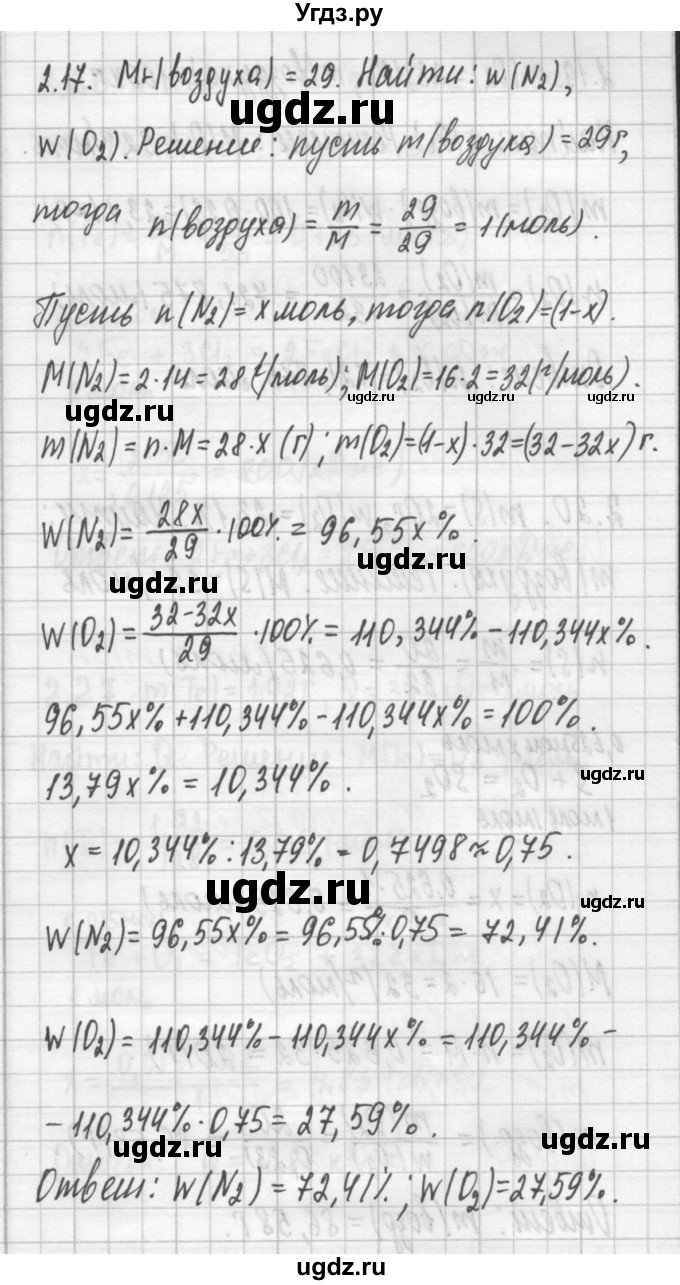 Угдз.ру
2.17. Mr(воздуха) = 29. Найти: w(N₂),
W(O₂). Решение: пусть m(воздуха) = 29г,
тогда n(воздуха) = m/M = 29/29 = 1 (моль).
Пусть n(N₂) = x моль, тогда n(O₂) = (1-x).
M(N₂) = 2·14 = 28 (г/моль); M(O₂) = 16·2 = 32(г/моль).
m(N₂) = n·M = 28·x (г); m(O₂) = (1-x)·32 = (32-32x) г.
W(N₂) = 28x/29 · 100% = 96,55x%.
W(O₂) = 32-32x/29 · 100% = 110,344% - 110,344x%.
96,55x% + 110,344% - 110,344x% = 100%.
13,79x% = 10,344%.
x = 10,344% : 13,79% = 0,7498 ≈ 0,75.
W(N₂) = 96,55x% = 96,55%·0,75 = 72,41%.
W(O₂) = 110,344% - 110,344x% = 110,344% -
- 110,344%·0,75 = 27,59%.
Ответ: w(N₂) = 72,41%; w(O₂) = 27,59%.
ugdz.ru